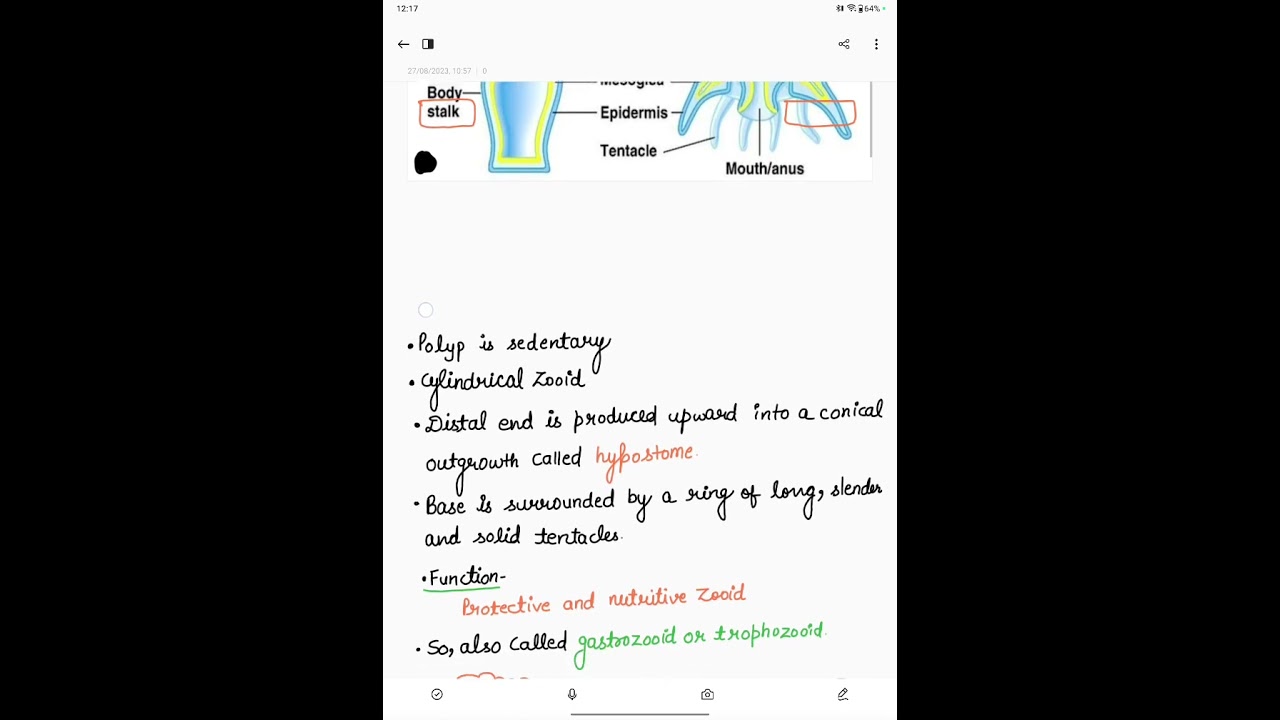 12:17
64%
27/08/2023, 10:57 | 0
Mesoglea
Body
stalk
Epidermis
Tentacle
Mouth/anus
• Polyp is sedentary
• Cylindrical Zooid
• Distal end is produced upward into a conical
outgrowth called hypostome.
• Base is surrounded by a ring of long, slender
and solid tentacles.
• Function-
Protective and nutritive Zooid
• So, also called gastrozooid or trophozooid.